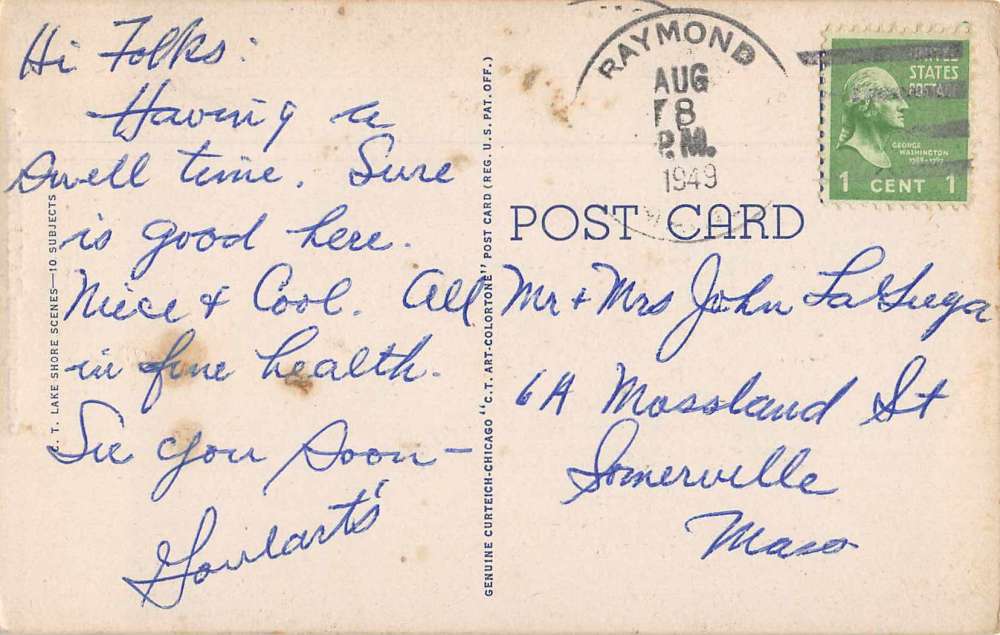 Hi Folks:
Having a
Swell time. Sure
is good here.
Niece & Cool. All
in fine health.
See you Soon —
Goulart's
C. T. LAKE SHORE SCENES—10 SUBJECTS
GENUINE CURTEICH-CHICAGO "C.T. ART-COLORTONE" POST CARD (REG. U.S. PAT. OFF.)
RAYMOND
AUG
8
P.M.
1949
UNITED
STATES
POSTAGE
GEORGE
WASHINGTON
1789-1797
1 CENT 1
POST CARD
Mr & Mrs John
6A Mossland St
Somerville
Mass